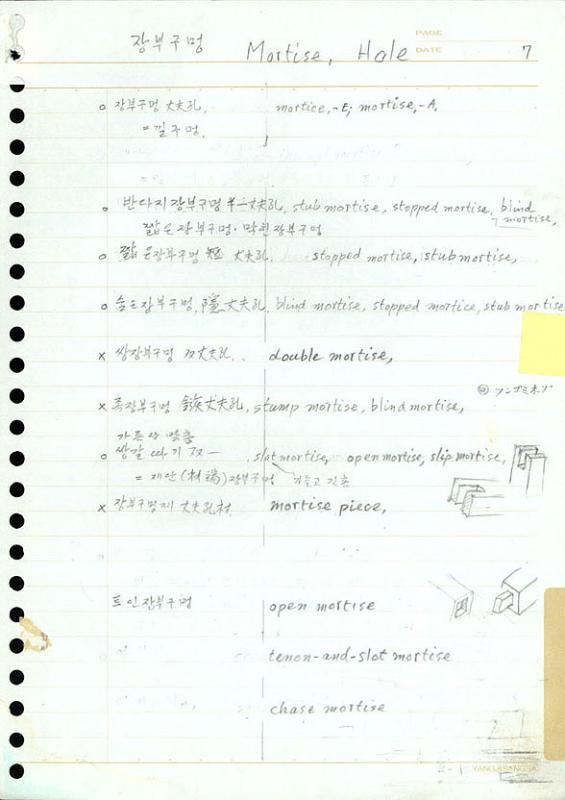 장부구멍 Mortise, Hole PAGE
DATE 7
o 장부구멍 丈夫孔, mortice, -E; mortise, -A.
= 낄구멍.
o 반다지장부구멍 半丈夫孔, stub mortise, stopped mortise, blind mortise,
짧은장부구멍·막힌장부구멍
o 짧은장부구멍 短丈夫孔, stopped mortise, stub mortise,
o 숨은장부구멍, 隱丈夫孔, blind mortise, stopped mortice, stub mortise
x 쌍장부구멍 双丈夫孔, double mortise,
x 촉장부구멍 鏃丈夫孔, stump mortise, blind mortise,
o 쌍갈 따기 slot mortise, open mortise, slip mortise,
= 재단(材端)장부구멍
x 장부구멍재 丈夫孔材 mortise piece,
트인장부구멍 open mortise
tenon-and-slot mortise
chase mortise